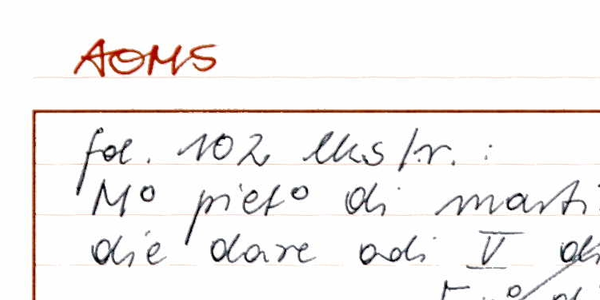 AOMS
fol. 102 Ekstr. :
Mo pieto di marti
die dare adi V di